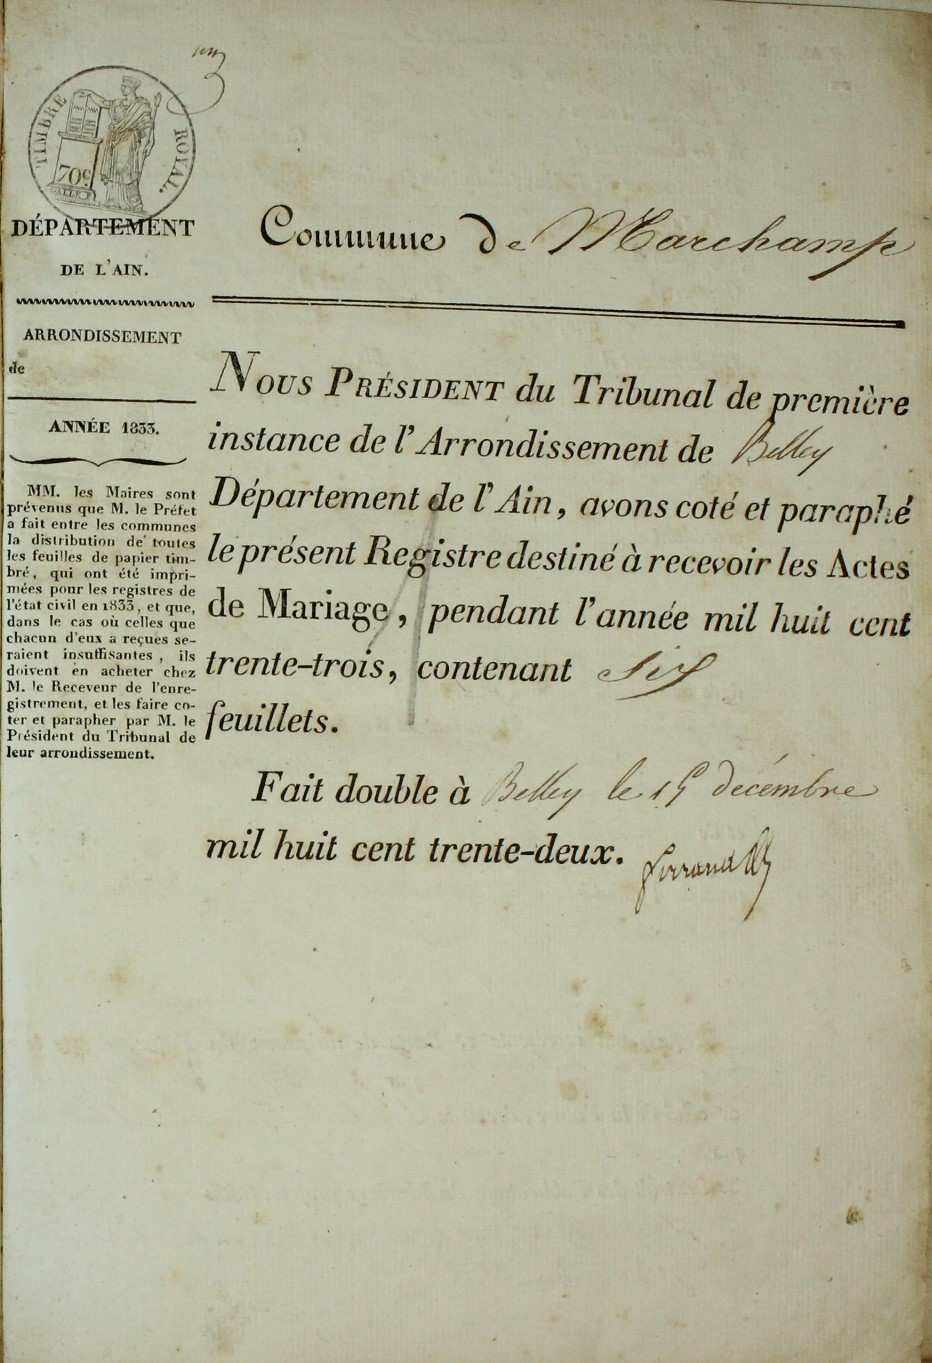 TIMBRE ROYAL.
70 c
DÉPARTEMENT
DE L'AIN.
ARRONDISSEMENT
de
ANNÉE 1833.
MM. les Maires sont
prévenus que M. le Préfet
a fait entre les communes
la distribution de toutes
les feuilles de papier tim-
bré, qui ont été impri-
mées pour les registres de
l'état civil en 1833, et que,
dans le cas où celles que
chacun d'eux a reçues se-
raient insuffisantes, ils
doivent en acheter chez
M. le Receveur de l'enre-
gistrement, et les faire co-
ter et parapher par M. le
Président du Tribunal de
leur arrondissement.
Commune de Marchamp
NOUS PRÉSIDENT du Tribunal de première
instance de l'Arrondissement de Belley
Département de l'Ain, avons coté et paraphé
le présent Registre destiné à recevoir les Actes
de Mariage, pendant l'année mil huit cent
trente-trois, contenant Six
feuillets.
Fait double à Belley le 15 décembre
mil huit cent trente-deux.